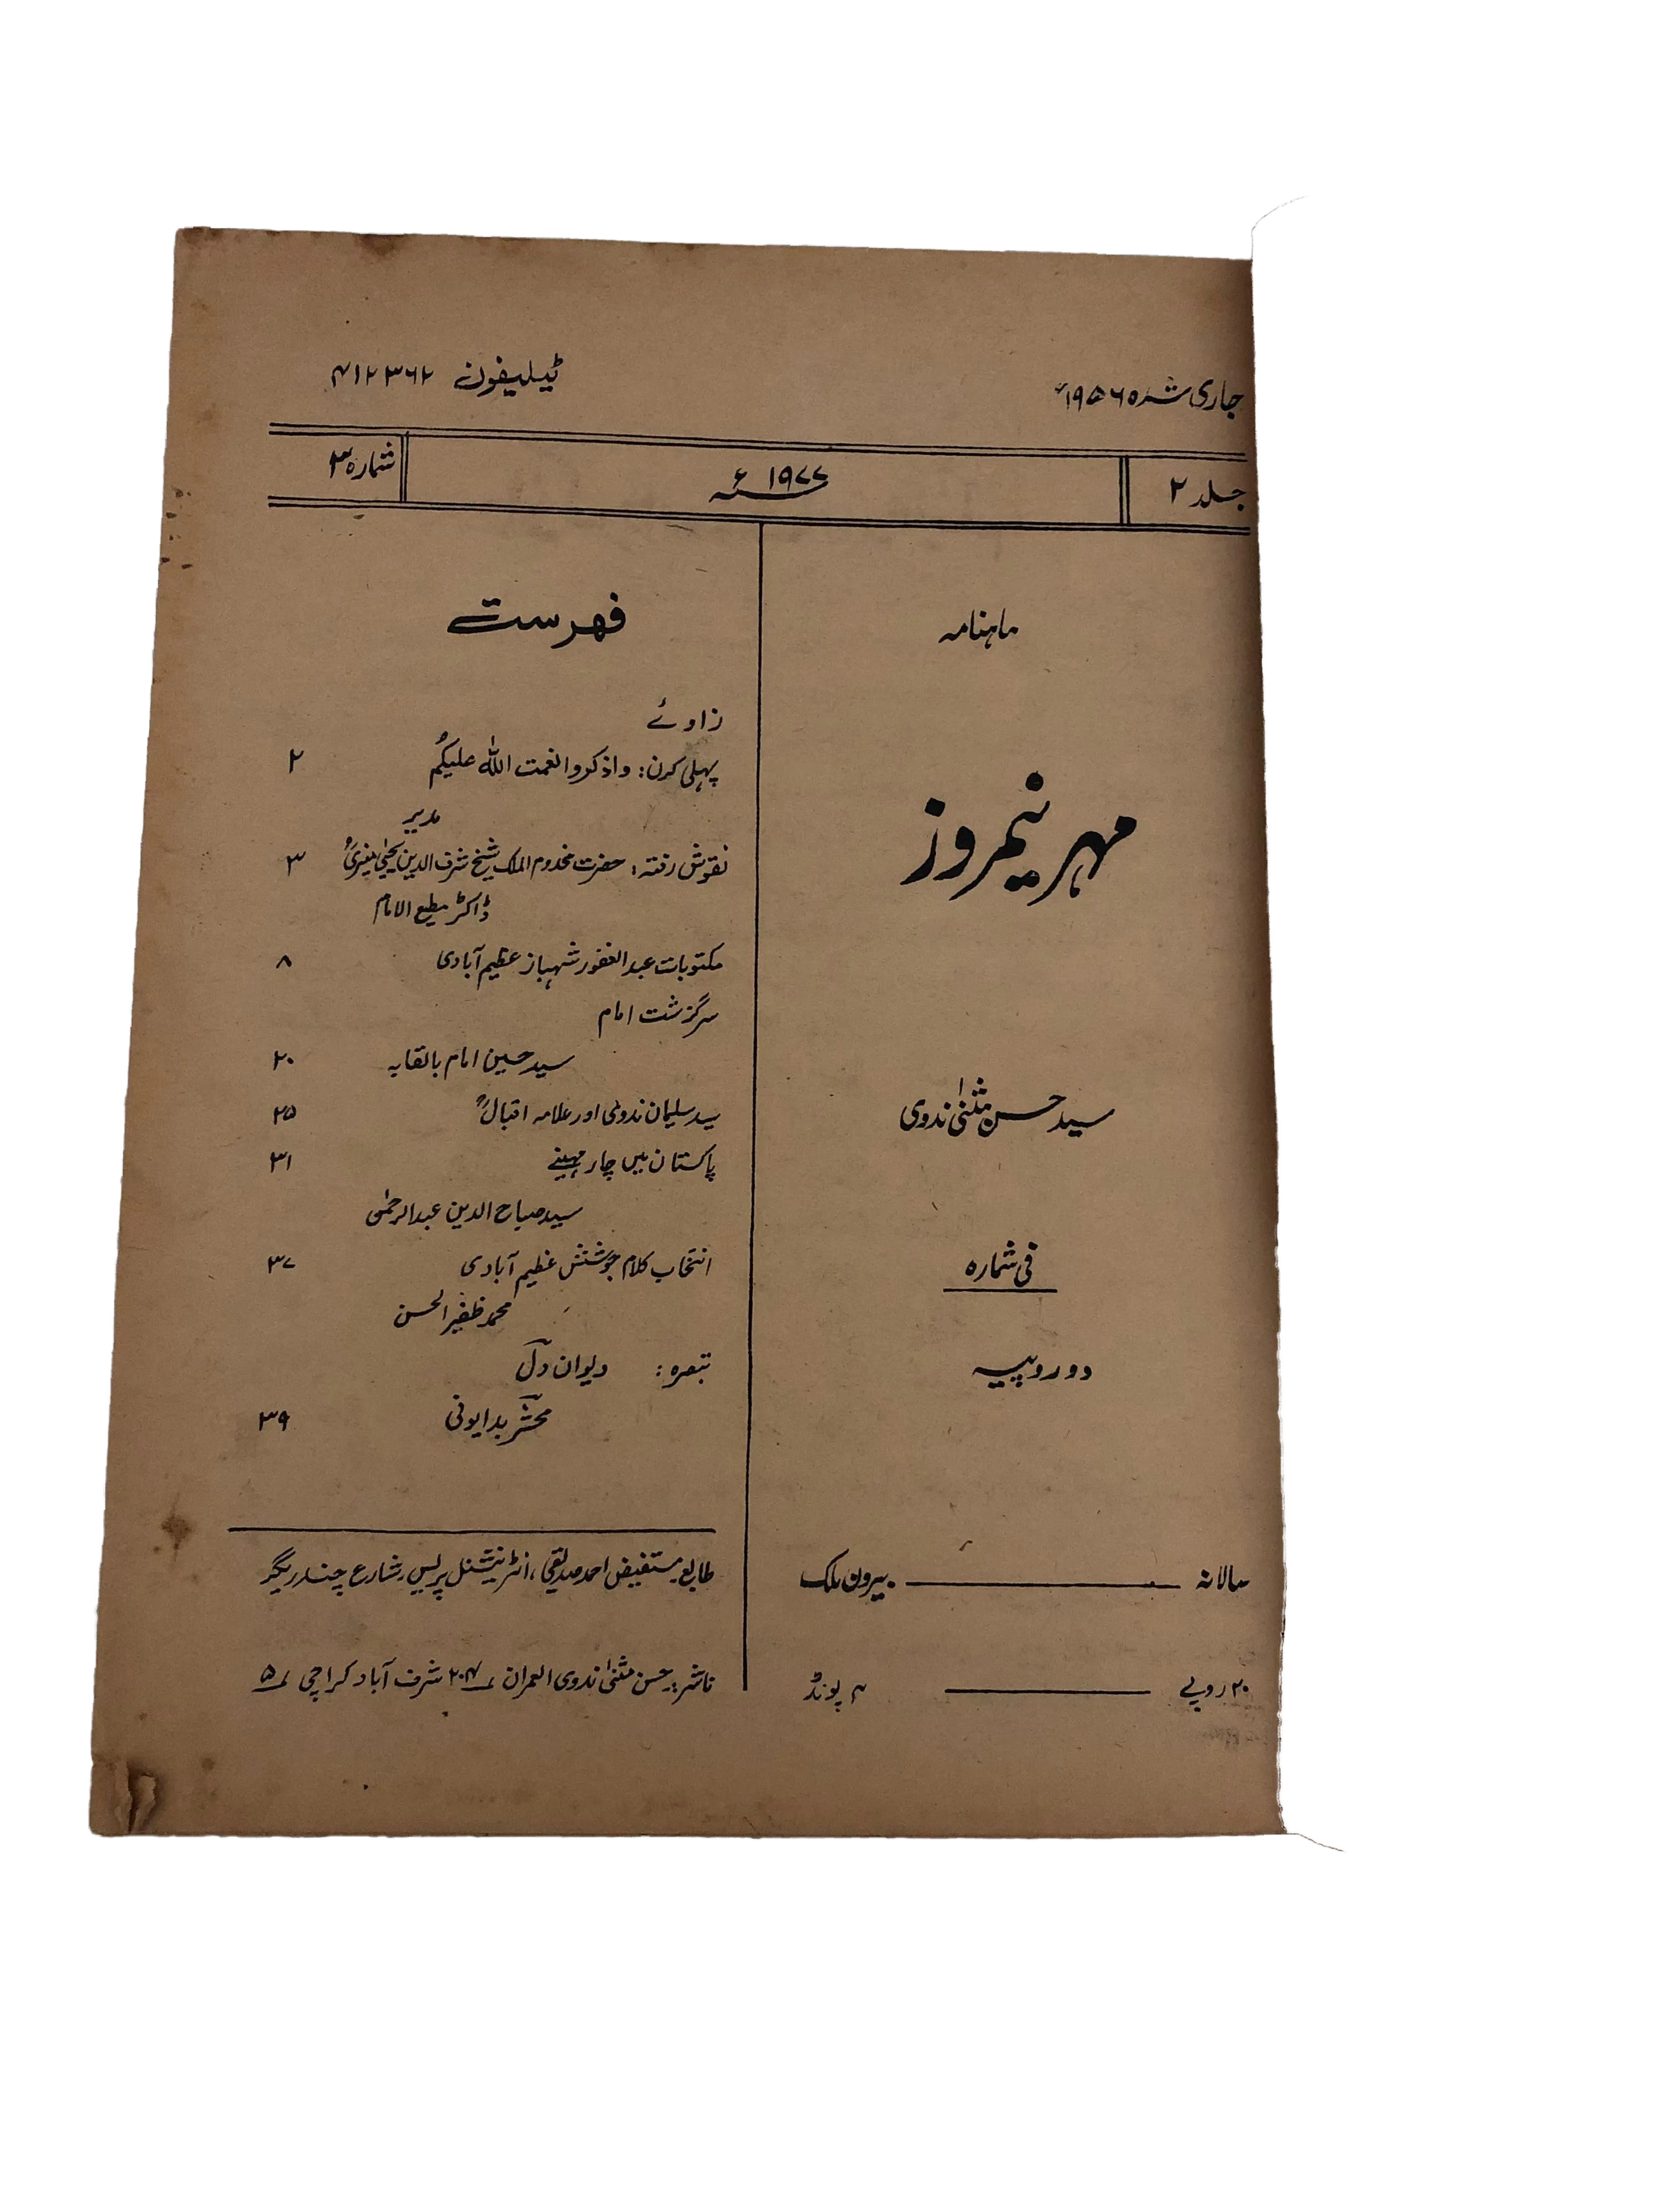 جاری شدہ ۱۹۵۶ء
ٹیلیفون ۴۱۲۳۶۲
جلد ۲
۱۹۷۷ء
شمارہ ۳
ماہنامہ
مہر نیمروز
سید حسن مثنیٰ ندوی
فی شمارہ
دو روپیہ
سالانہ ——— بیرون ملک
۲۰ روپے ——— ۴ پونڈ
فہرست
زاوئے
پہلی کرن: واذکروا نعمت اللہ علیکم ۲
مدیر
نقوش رفتہ: حضرت مخدوم الملک شیخ شرف الدین یحییٰ منیریؒ ۳
ڈاکٹر مطیع الامام
مکتوبات عبدالغفور شہباز عظیم آبادی ۸
سرگزشت امام
سید حسین امام بالقابہ ۲۰
سید سلیمان ندویؒ اور علامہ اقبالؒ ۲۵
پاکستان میں چار مہینے ۳۱
سید صباح الدین عبدالرحمٰن
انتخاب کلام جوشش عظیم آبادی ۳۷
محمد ظفیر الحسن
تبصرہ: دیوان دل
محشر بدایونی ۳۹
طابع مستفیض احمد صدیقی، انٹرنیشنل پریس، شارع چندریگر
ناشر: حسن مثنیٰ ندوی العمران ۲۰۴ شرف آباد کراچی ۵